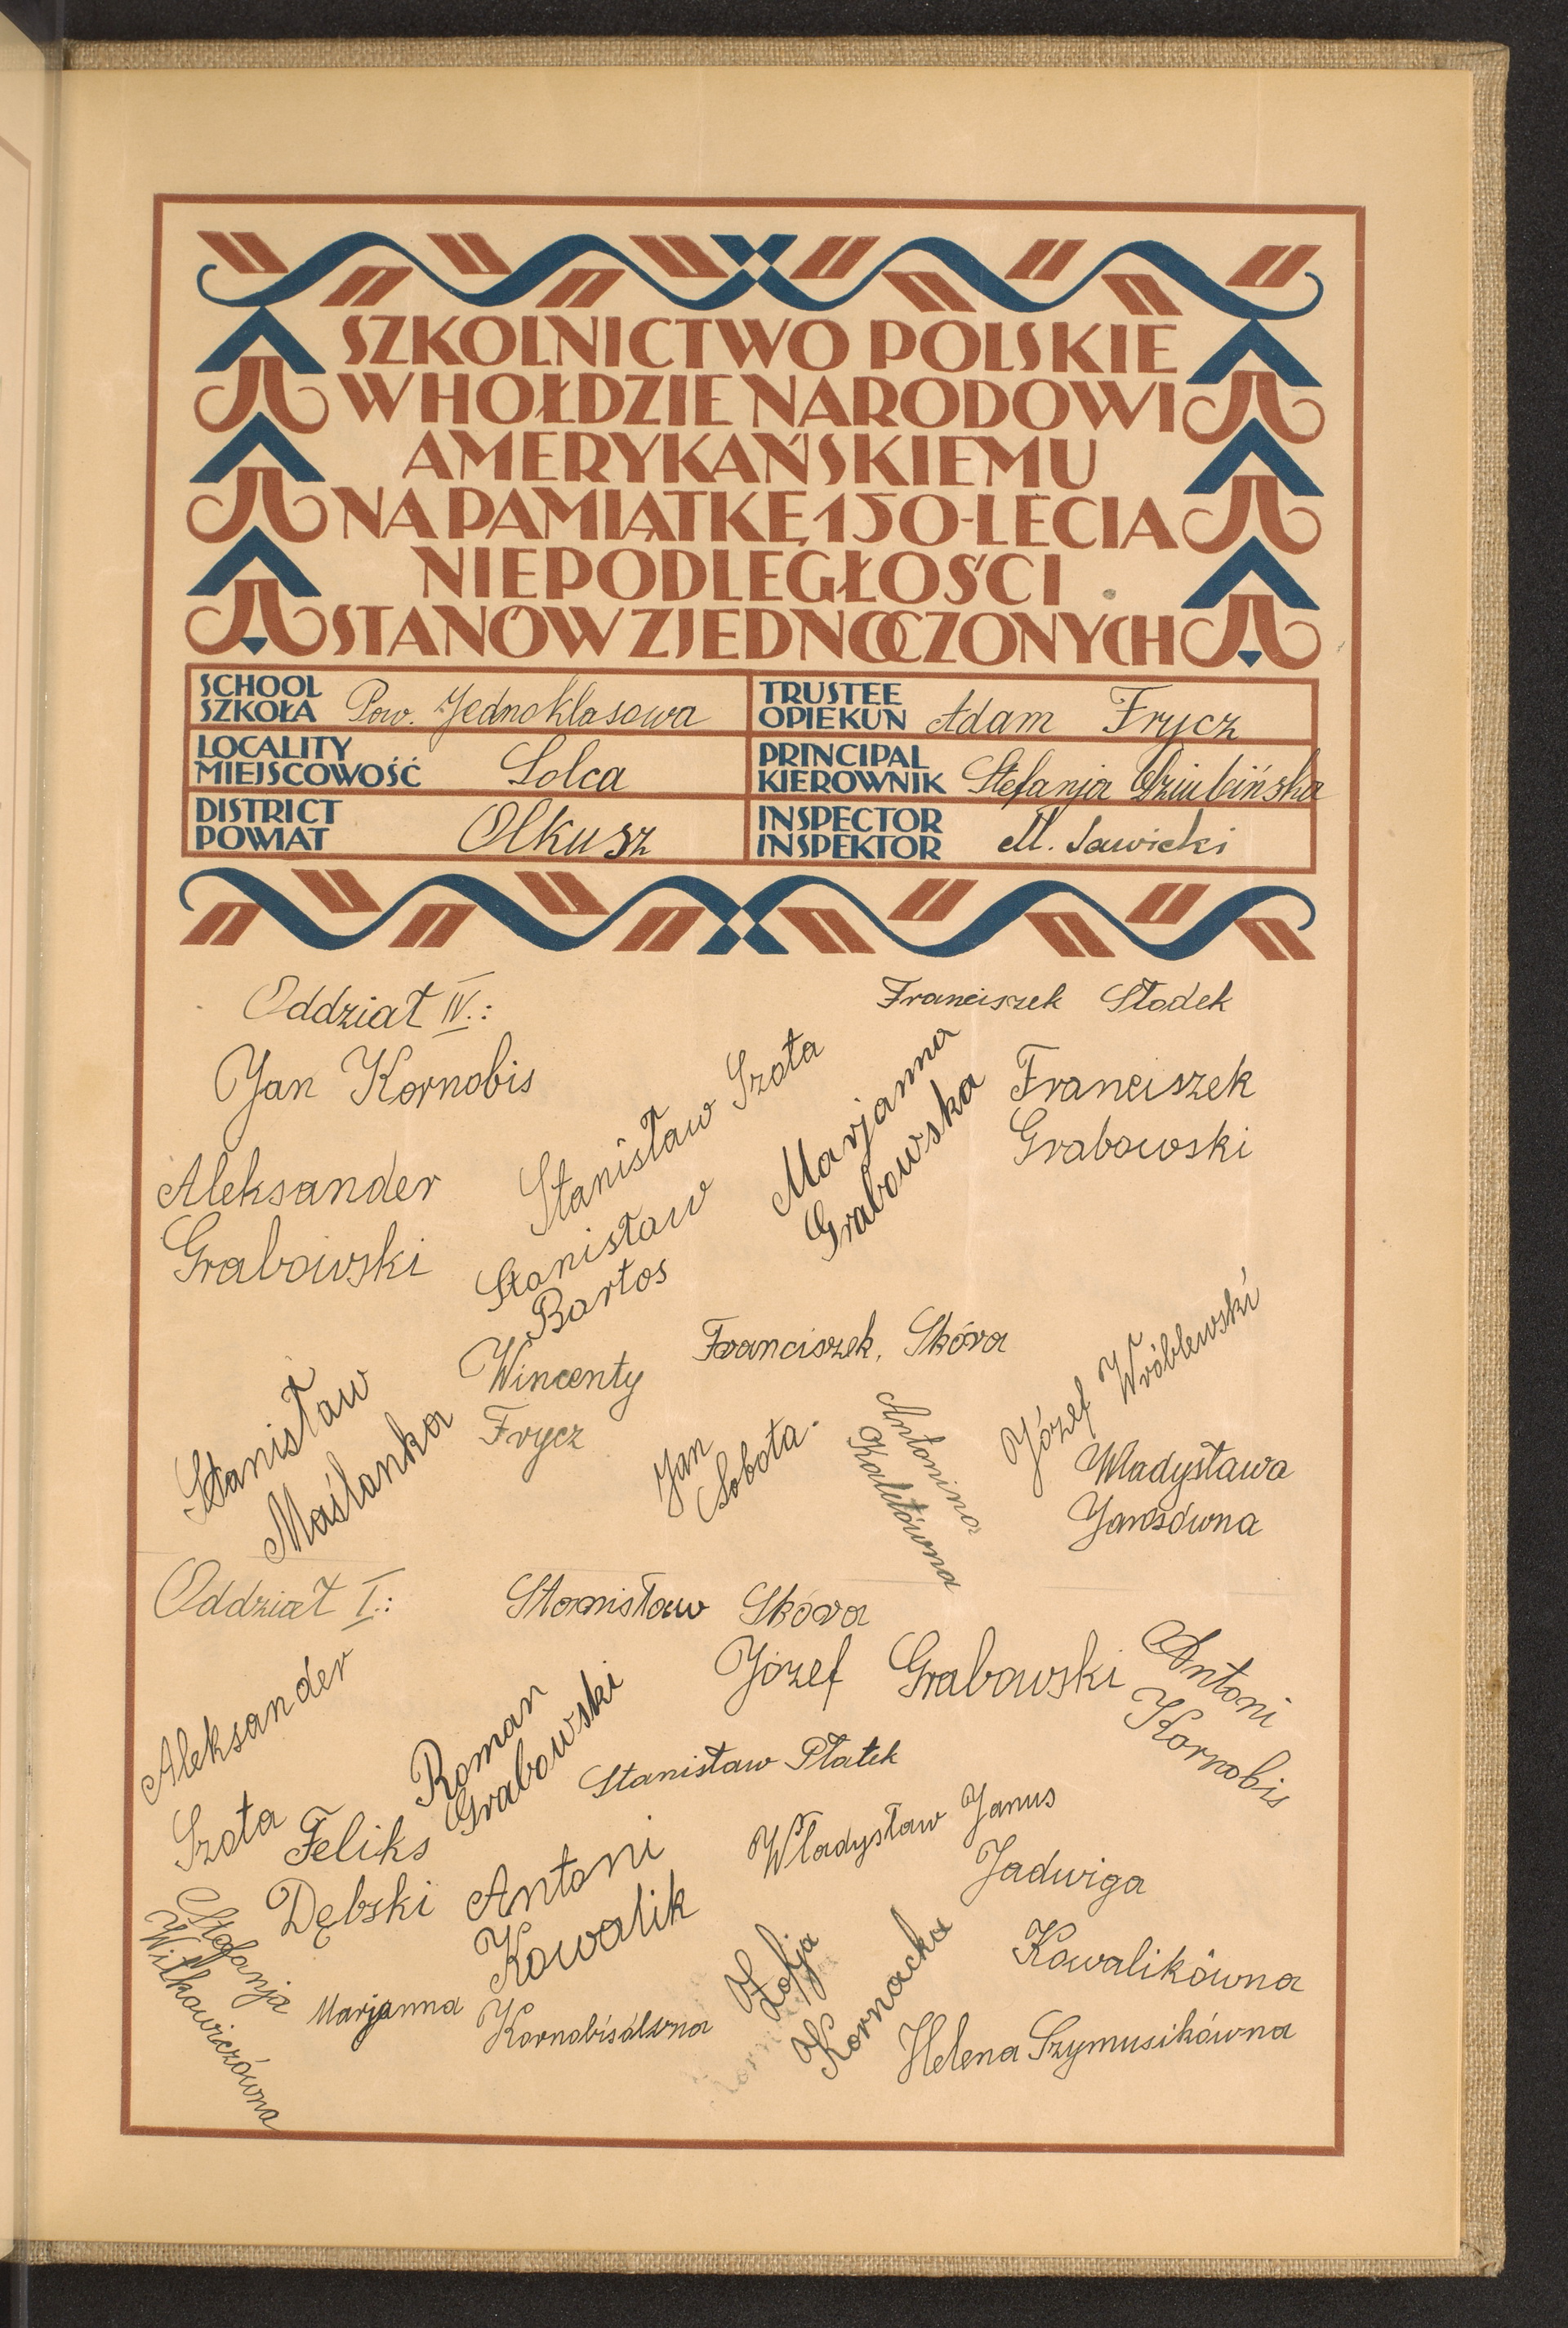 SZKOLNICTWO POLSKIE
W HOŁDZIE NARODOWI
AMERYKAŃSKIEMU
NA PAMIĄTKĘ 150-LECIA
NIEPODLEGŁOŚCI
STANÓW ZJEDNOCZONYCH
SCHOOL
SZKOŁA Pow. Jednoklasowa
TRUSTEE
OPIEKUN Adam Frycz
LOCALITY
MIEJSCOWOŚĆ Solca
PRINCIPAL
KIEROWNIK Stefanja Dziubińska
DISTRICT
POWIAT Olkusz
INSPECTOR
INSPEKTOR M. Sawicki
Oddział IV.:
Franciszek Słodek
Jan Kornobis
Stanisław Szota
Marjanna
Grabowska
Franciszek
Grabowski
Aleksander
Grabowski
Stanisław
Bartos
Wincenty
Frycz
Franciszek, Skóra
Józef Wróblewski
Stanisław
Maślanka
Jan
Sobota.
Antonina
Kaletówna
Władysława
Jarosówna
Oddział I.:
Stanisław Skóra
Józef Grabowski
Antoni
Kornobis
Aleksander
Szota
Roman
Grabowski
Stanisław Płatek
Feliks
Dębski
Antoni
Kowalik
Władysław Janus
Jadwiga
Kowalikówna
Stefanja
Witkowiczówna
Marjanna Kornobisówna
Zofja
Kornacka
Helena Szymusikówna